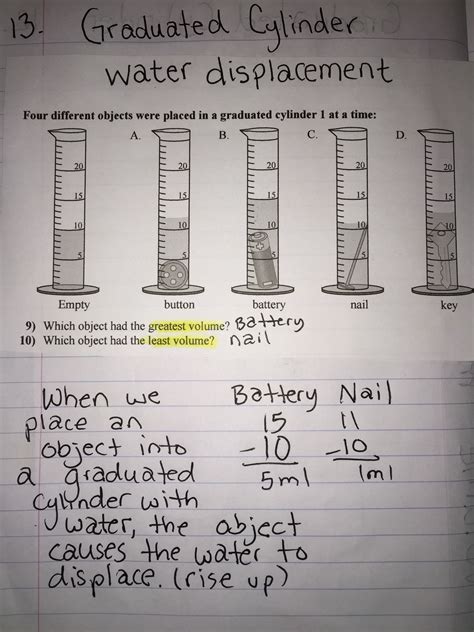 13. Graduated Cylinder
water displacement
Four different objects were placed in a graduated cylinder 1 at a time:
A. B. C. D.
20 20 20 20 20
15 15 15 15 15
10 10 10 10 10
5 5 5 5 5
Empty button battery nail key
9) Which object had the greatest volume? Battery
10) Which object had the least volume? nail
When we
place an
object into
a graduated
cylinder with
water, the object
causes the water to
displace. (rise up)
Battery Nail
15 11
-10 -10
5ml 1ml